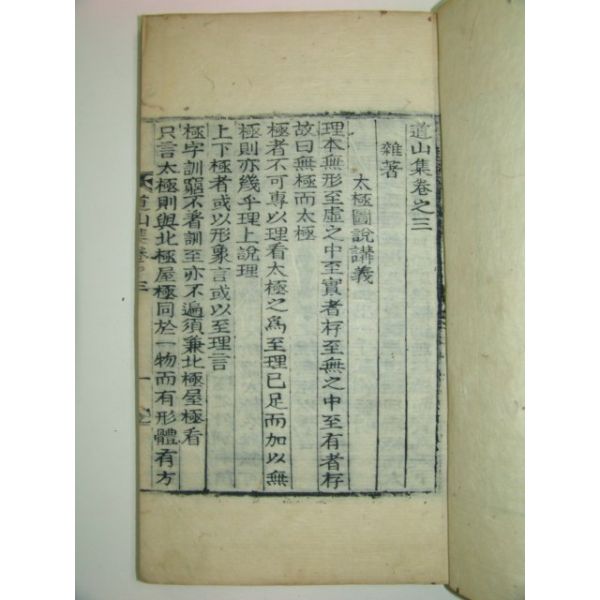 道山集卷之三
雜著
太極圖說講義
理本無形至虛之中至實者存至無之中至有者存
故曰無極而太極
極者不可專以理看太極之爲至理已足而加以無
極則亦幾乎理上說理
上下極者或以形象言或以至理言
極字訓窮不著訓至亦不遍須兼北極屋極看
只言太極則與北極屋極同於一物而有形體有方
道山集卷之三 一